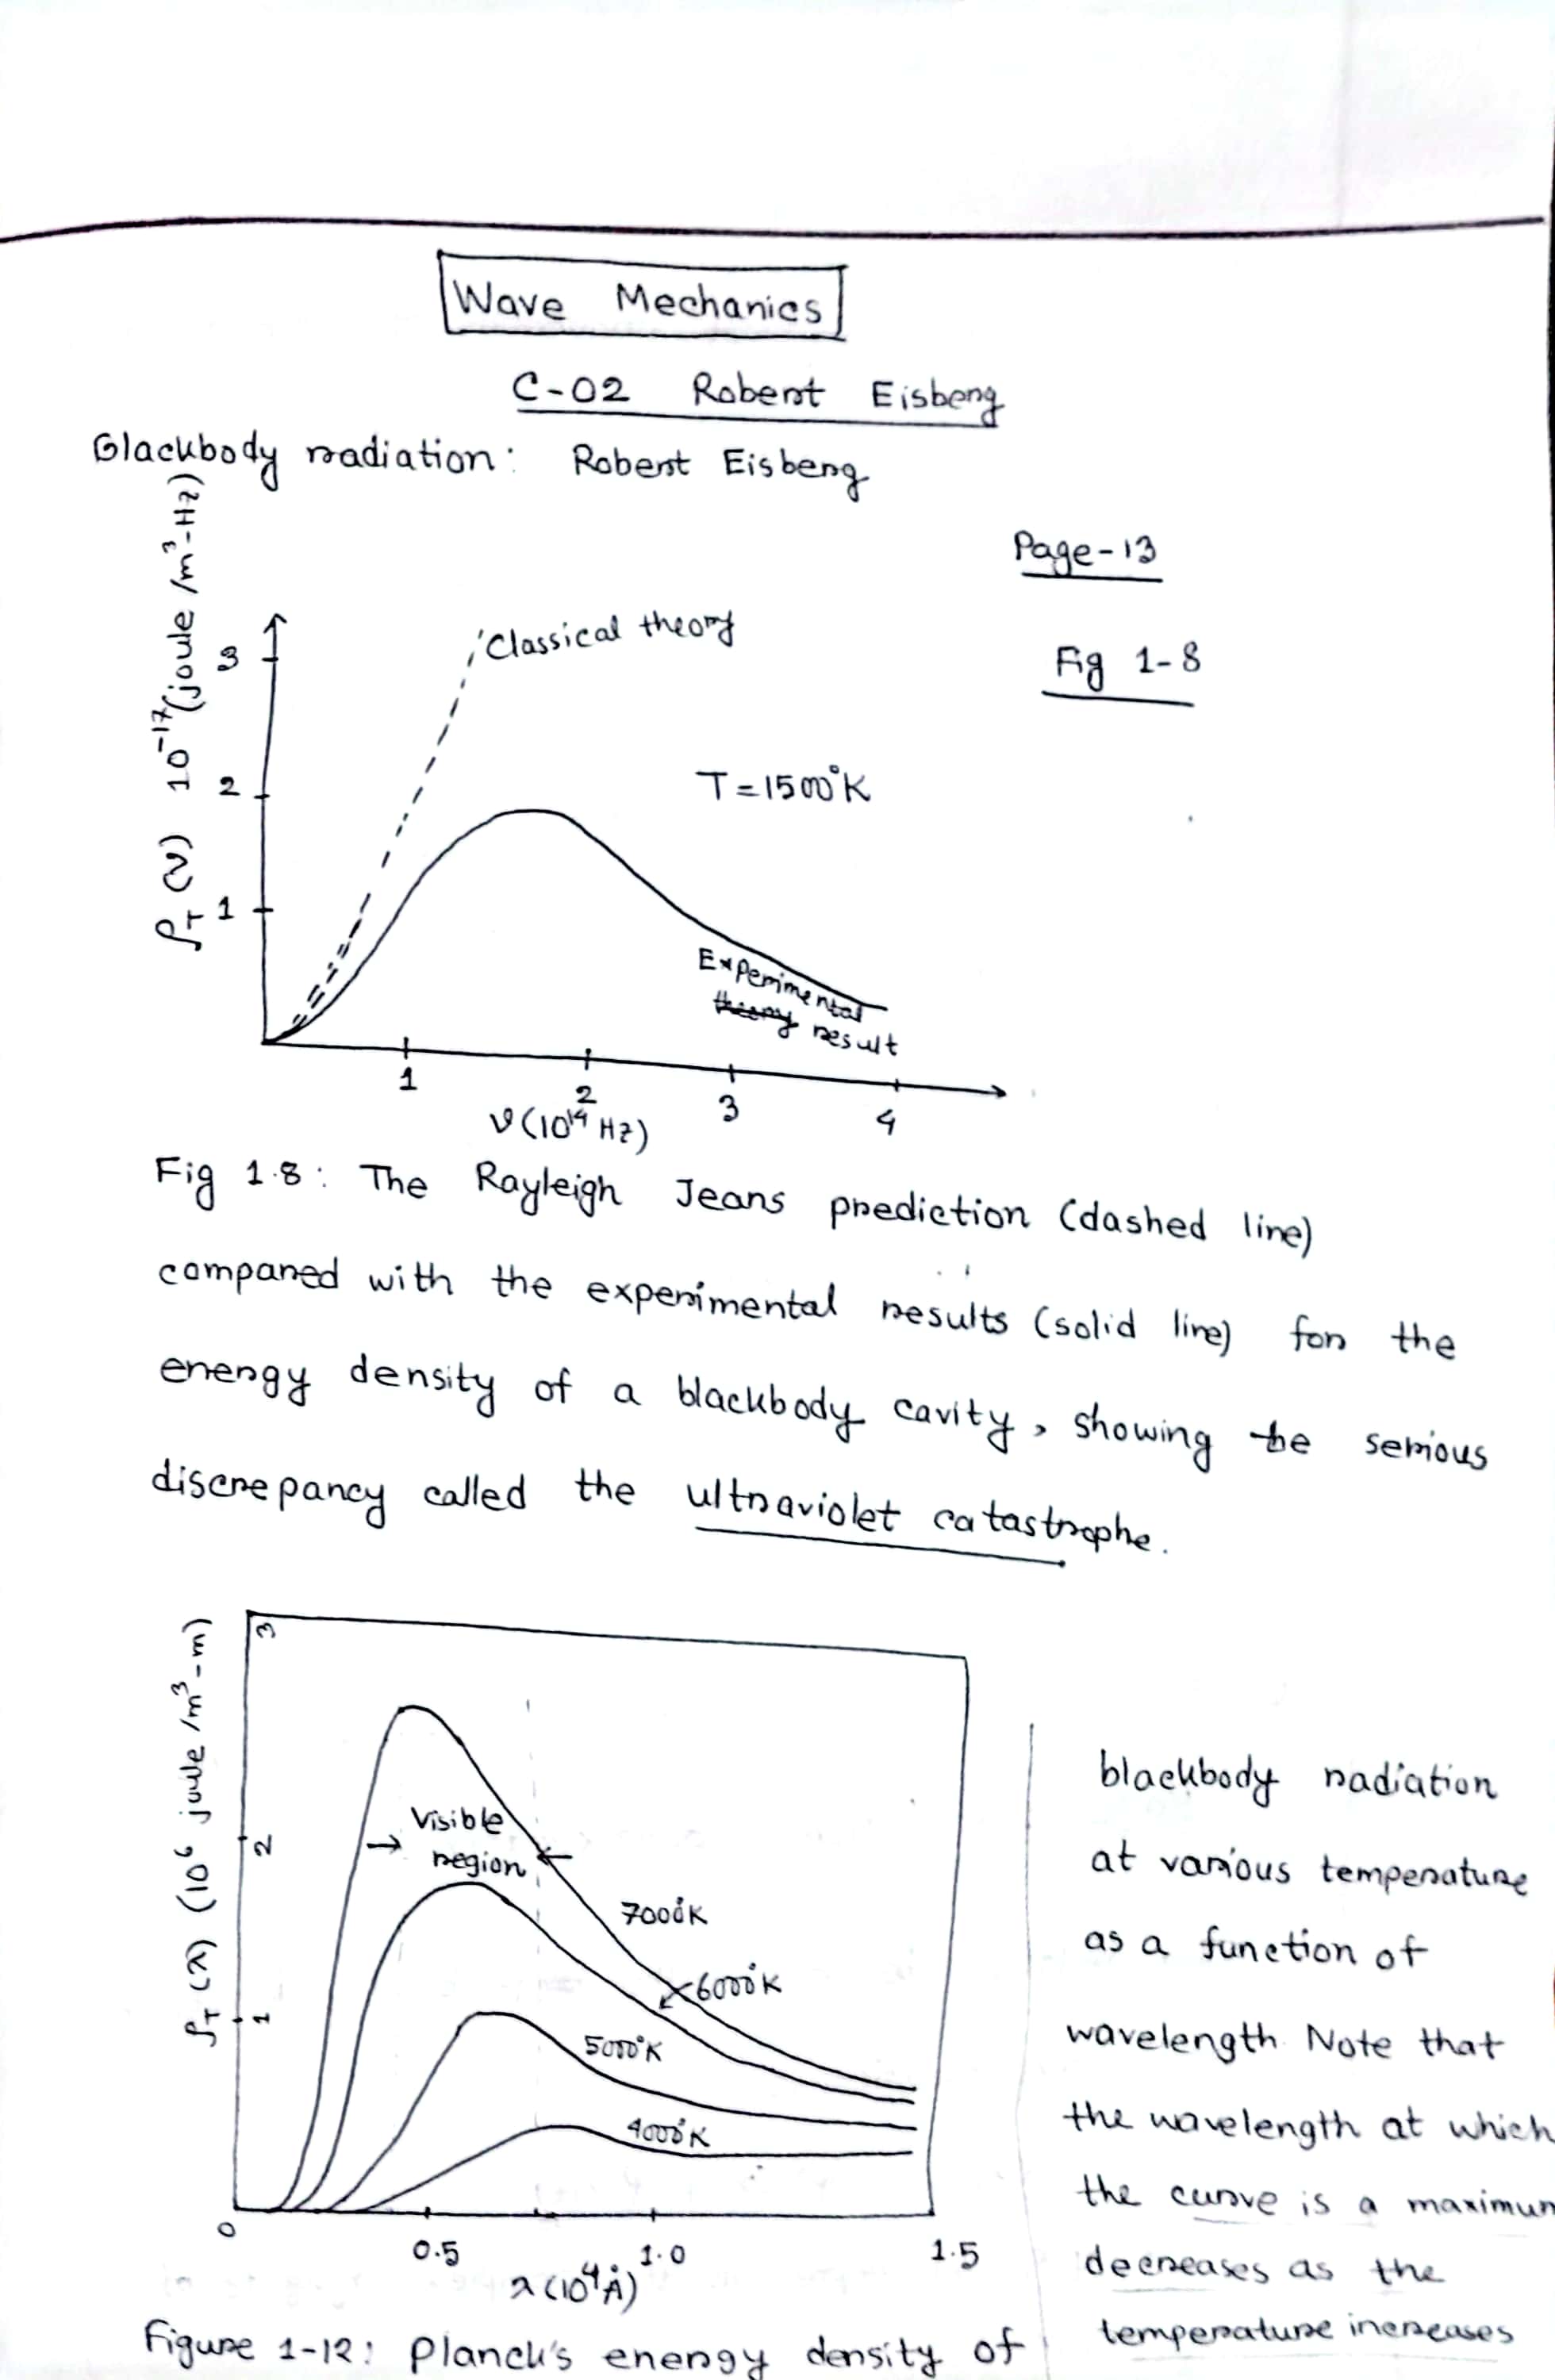 Wave Mechanics
C-02 Robert Eisberg
Blackbody radiation: Robert Eisberg
Page-13
Fig 1-8
ρT (ν) 10⁻¹⁷ (joule /m³-Hz)
3
2
1
Classical theory
T = 1500°K
Experimental
theory result
1 2 3 4
ν (10¹⁴ Hz)
Fig 1.8: The Rayleigh Jeans prediction (dashed line)
compared with the experimental results (solid line) for the
energy density of a blackbody cavity, showing the serious
discrepancy called the ultraviolet catastrophe.
ρT (λ) (10⁶ joule /m³-m)
3
2
1
Visible
region
7000°K
6000°K
5000°K
4000°K
0 0.5 1.0 1.5
λ (10⁴ Å)
Figure 1-12: Planck's energy density of
blackbody radiation
at various temperature
as a function of
wavelength. Note that
the wavelength at which
the curve is a maximum
decreases as the
temperature increases